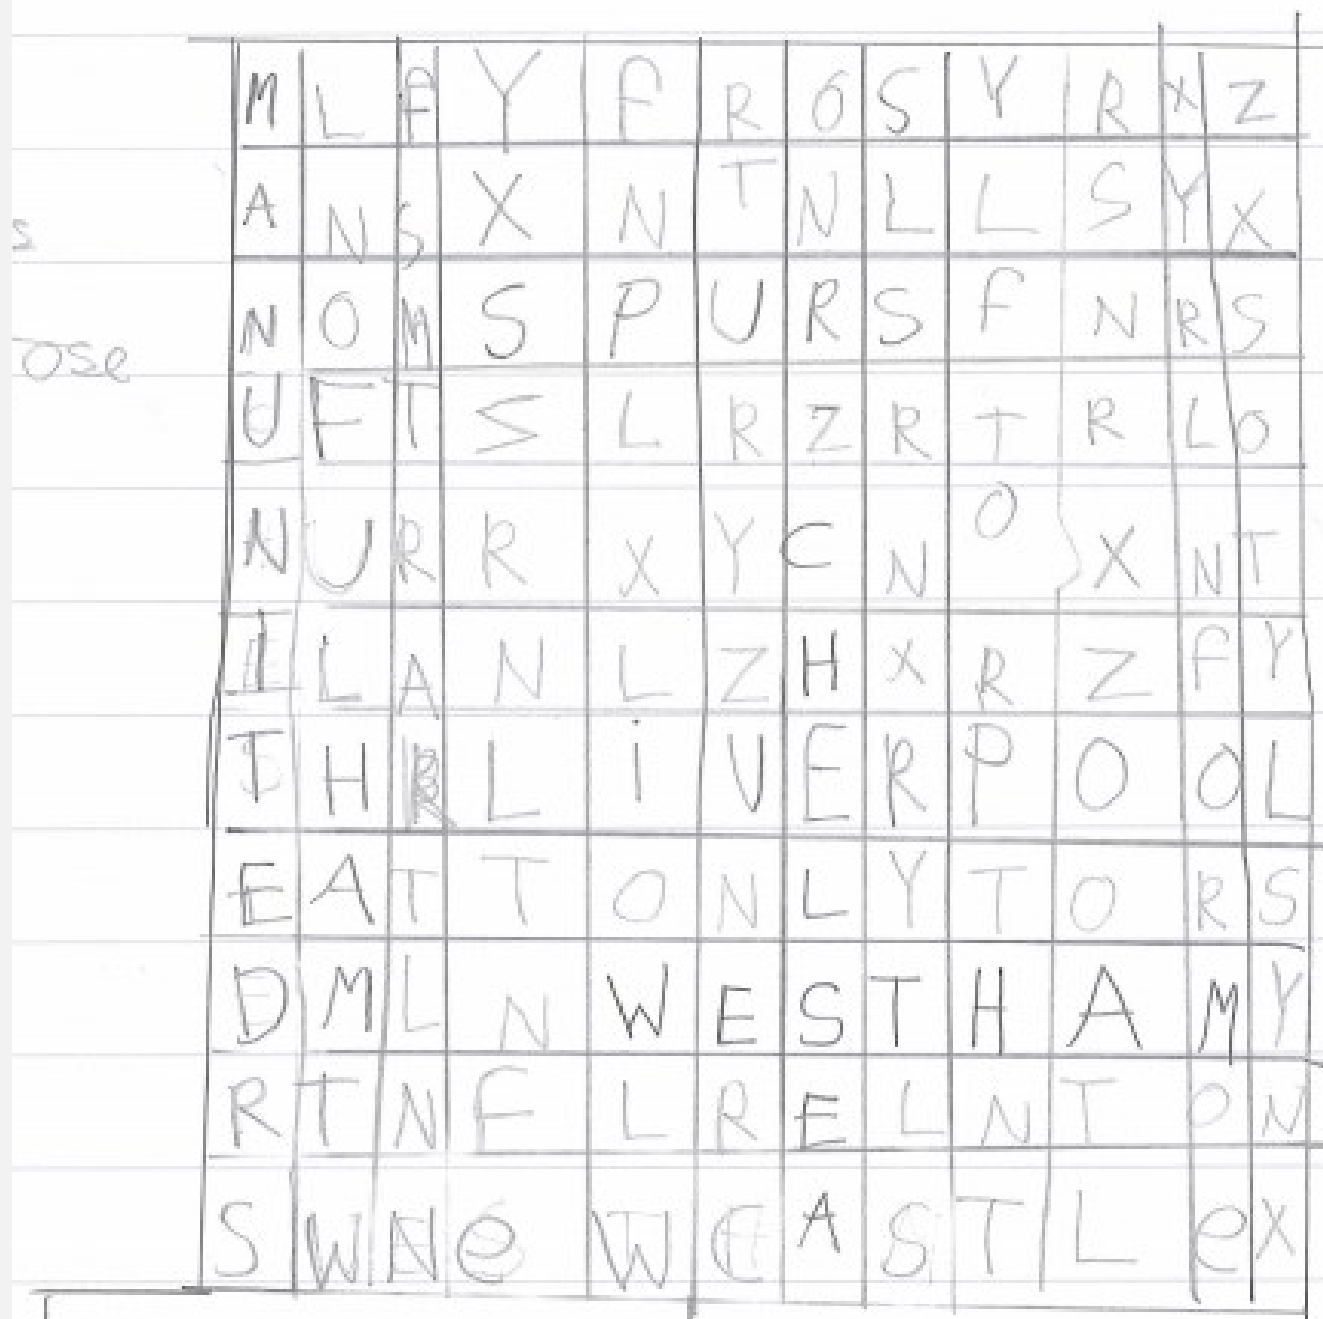 M L F Y F R O S Y R X Z
A N S X N T N L L S Y X
s
N O M S P U R S F N R S
ose
U F T S L R Z R T R L O
N U R R X Y C N O X N T
I L A N L Z H X R Z F Y
T H R L i V E R P O O L
E A T T O N L Y T O R S
D M L N W E S T H A M Y
R T N F L R E L N T O N
S W N e W C A S T L e X